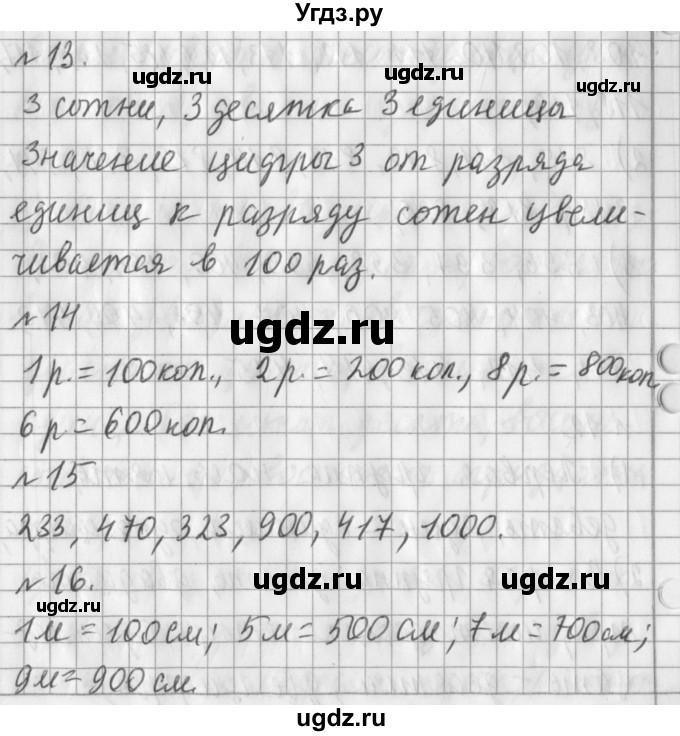 Угдз.ру
№ 13.
ugdz.ru ugdz.ru ugdz.ru
3 сотни, 3 десятка 3 единицы
Значение цифры 3 от разряда
единиц к разряду сотен увели-
чивается в 100 раз.
№ 14
ugdz.ru
1 р. = 100 коп., 2 р. = 200 коп., 8 р. = 800 коп.
6 р = 600 коп.
№ 15
233, 470, 323, 900, 417, 1000.
№ 16.
ugdz.ru ugdz.ru ugdz.ru
1 м = 100 см; 5 м = 500 см; 7 м = 700 см;
9 м = 900 см.
ugdz.ru